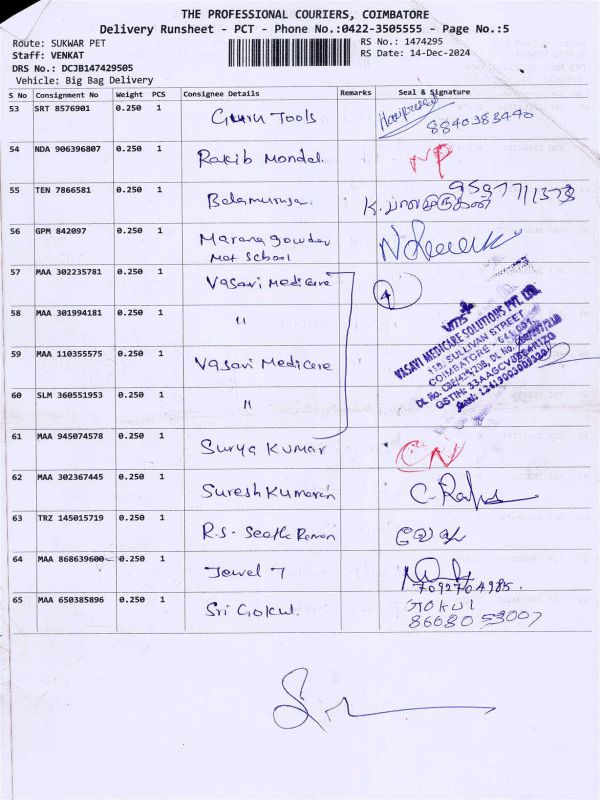 THE PROFESSIONAL COURIERS, COIMBATORE
Delivery Runsheet - PCT - Phone No.:0422-3505555 - Page No.:5
Route: SUKWAR PET
RS No.: 1474295
Staff: VENKAT
RS Date: 14-Dec-2024
DRS No.: DCJB147429505
Vehicle: Big Bag Delivery
S No Consignment No Weight PCS Consignee Details Remarks Seal & Signature
53 SRT 8576901 0.250 1 Guru Tools
8840383440
54 NDA 906396807 0.250 1 Rakib Mondal NP
55 TEN 7866581 0.250 1 Balamurugan 9597711373
K. பாலமுருகன்
56 GPM 842097 0.250 1 Marana gowder
Mat School
57 MAA 302235781 0.250 1 Vasavi Medicare 4
58 MAA 301994181 0.250 1 "
59 MAA 110355575 0.250 1 Vasavi Medicare
VASAVI MEDICARE SOLUTIONS PVT. LTD.
118, SULLIVAN STREET
COIMBATORE - 641 001
60 SLM 360551953 0.250 1 "
61 MAA 945074578 0.250 1 Surya Kumar CN
62 MAA 302367445 0.250 1 Suresh Kumaran
63 TRZ 145015719 0.250 1 R.S- Seetha Raman
64 MAA 868639600 0.250 1 Jewel 7
7092764985.
65 MAA 650385896 0.250 1 Sri Gokul. GOKUL
86680 53007